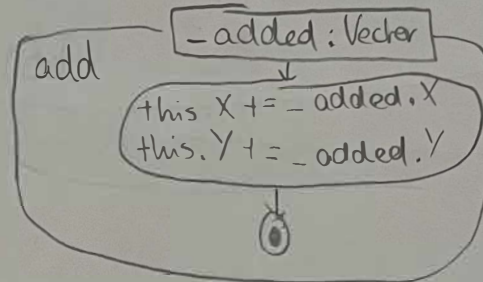 _added: Vector
add
this X += _added.X
this.Y += _added.Y